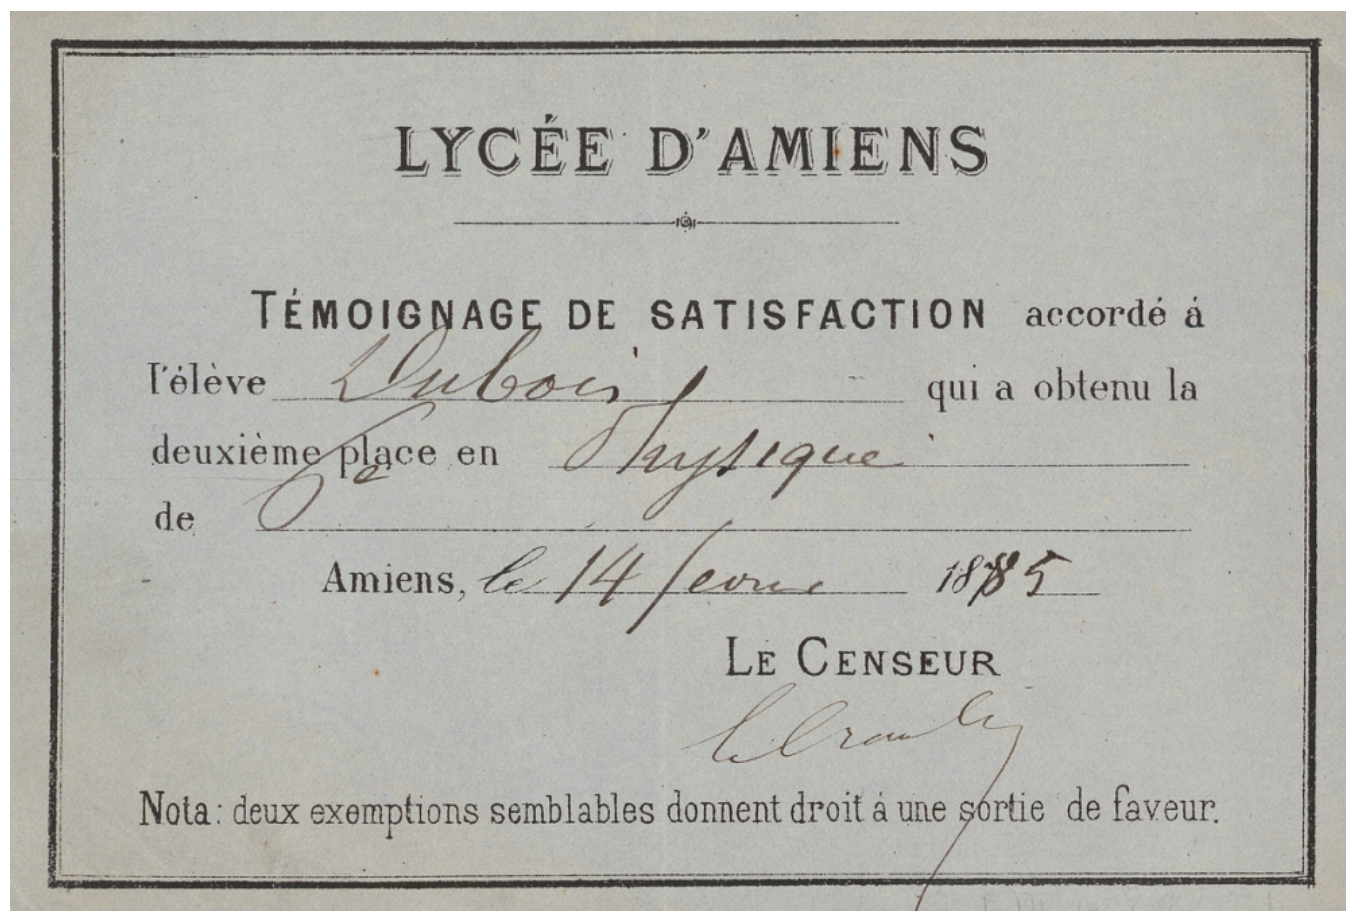 LYCÉE D'AMIENS
TÉMOIGNAGE DE SATISFACTION accordé à
l'élève Dubois qui a obtenu la
deuxième place en Physique
de 6e
Amiens, le 14 fevrier 1885
LE CENSEUR
Nota: deux exemptions semblables donnent droit à une sortie de faveur.